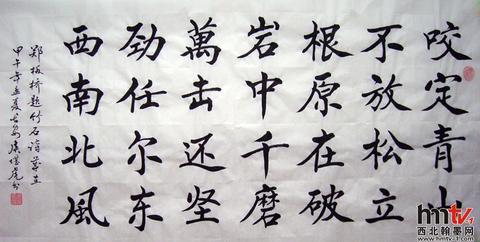 咬定青山
不放松立
根原在破
岩中千磨
萬击还坚
劲任尔东
西南北風
郑板桥题竹石诗
甲午年孟夏长安
hmtv-1
西北翰墨网
www.hmtv-1.com